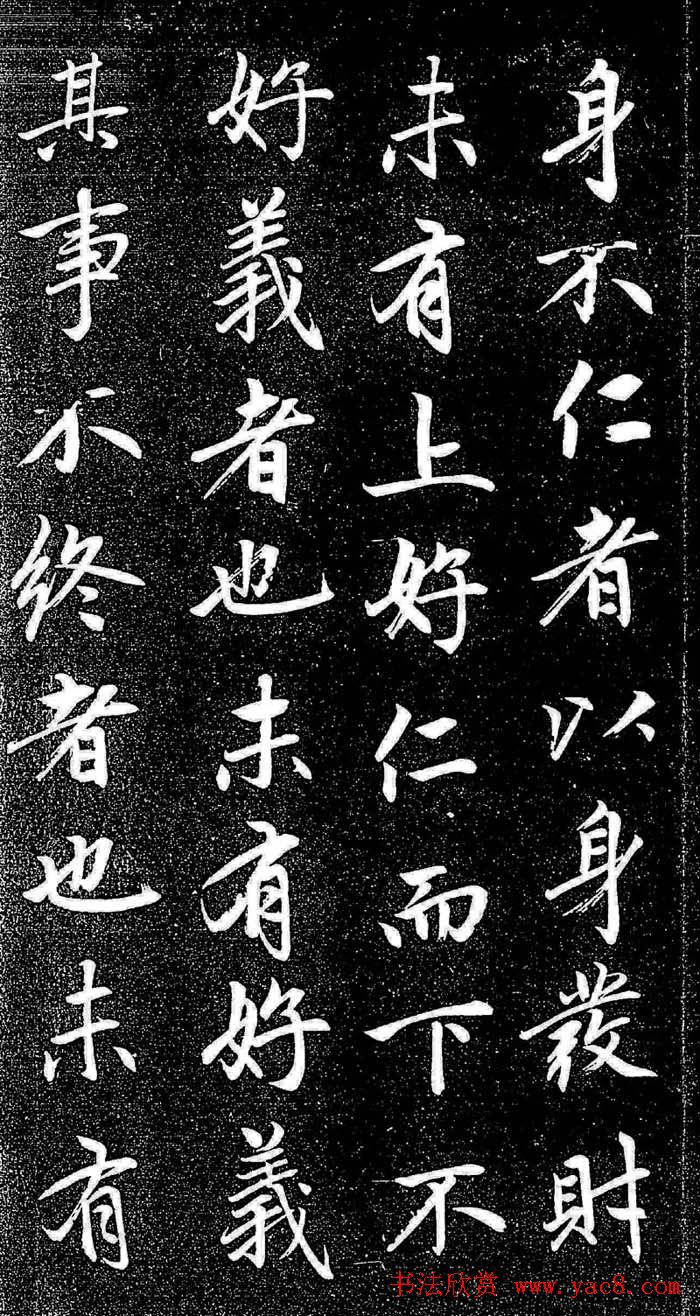 身不仁者以身發財
未有上好仁而下不
好義者也未有好義
其事不終者也未有
书法欣赏 www.yac8.com